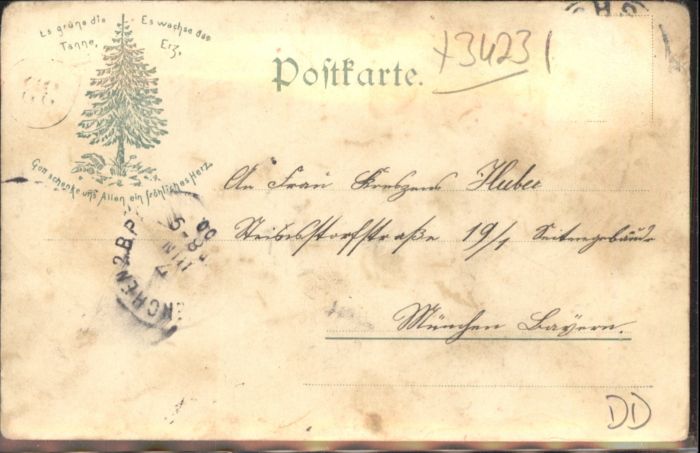 Es grüne die
Tanne,
Es wachse das
Erz,
Gott schenke uns Allen ein fröhliches Herz
+34231
Postkarte.
An Frau Kreszenz Huber
19/1 Seitengebäude
München Bayern.
NCHEN 2.B.P
DD